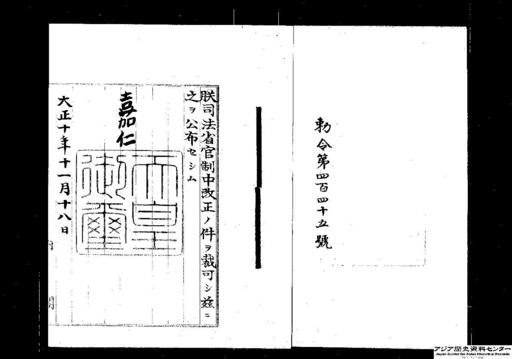 勅令第四百四十五號
朕司法省官制中改正ノ件ヲ裁可シ茲ニ
之ヲ公布セシム
嘉仁
天皇
御璽
大正十年十一月十八日
アジア歴史資料センター
Japan Center for Asian Historical Records